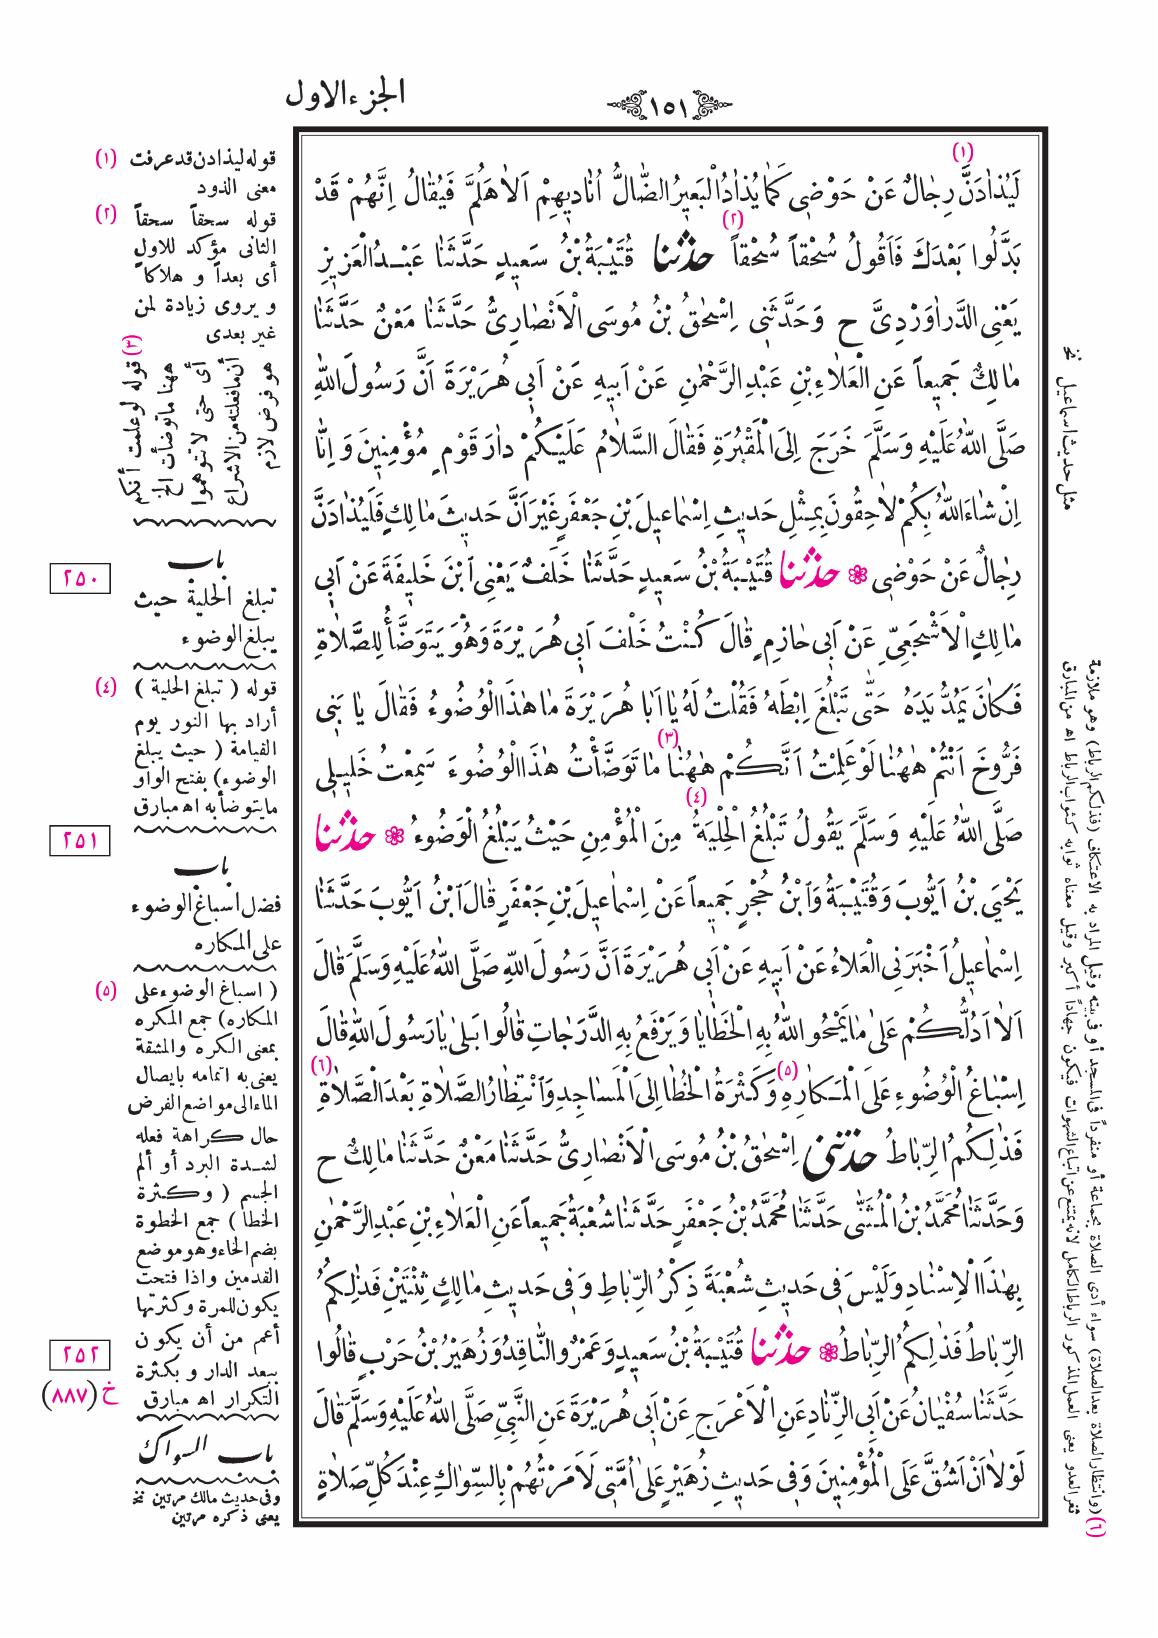 الجزء الاول
١٥١
لَيُذَادَنَّ رِجَالٌ عَنْ حَوْضِي كَمَا يُذَادُ الْبَعِيرُ الضَّالُّ أُنَادِيهِمْ اَلَا هَلُمَّ فَيُقَالُ اِنَّهُمْ قَدْ
بَدَّلُوا بَعْدَكَ فَاَقُولُ سُحْقاً سُحْقاً حدثنا قُتَيْبَةُ بْنُ سَعِيدٍ حَدَّثَنَا عَبْدُ الْعَزِيزِ
يَعْنِى الدَّرَاوَرْدِىَّ ح وَحَدَّثَنِى اِسْحٰقُ بْنُ مُوسَى الْاَنْصَارِىُّ حَدَّثَنَا مَعْنٌ حَدَّثَنَا
مَالِكٌ جَمِيعاً عَنِ الْعَلَاءِ بْنِ عَبْدِ الرَّحْمٰنِ عَنْ اَبِيهِ عَنْ اَبِى هُرَيْرَةَ اَنَّ رَسُولَ اللّٰهِ
صَلَّى اللّٰهُ عَلَيْهِ وَسَلَّمَ خَرَجَ اِلَى الْمَقْبُرَةِ فَقَالَ السَّلَامُ عَلَيْكُمْ دَارَ قَوْمٍ مُؤْمِنِينَ وَ اِنَّا
اِنْ شَاءَ اللّٰهُ بِكُمْ لَاحِقُونَ بِمِثْلِ حَدِيثِ اِسْمَاعِيلَ بْنِ جَعْفَرٍ غَيْرَ اَنَّ حَدِيثَ مَالِكٍ فَلَيُذَادَنَّ
رِجَالٌ عَنْ حَوْضِى ❁ حدثنا قُتَيْبَةُ بْنُ سَعِيدٍ حَدَّثَنَا خَلَفٌ يَعْنِى ابْنَ خَلِيفَةَ عَنْ اَبِى
مَالِكٍ الْاَشْجَعِىِّ عَنْ اَبِى حَازِمٍ قَالَ كُنْتُ خَلْفَ اَبِى هُرَيْرَةَ وَهُوَ يَتَوَضَّأُ لِلصَّلَاةِ
فَكَانَ يَمُدُّ يَدَهُ حَتّٰى تَبْلُغَ اِبْطَهُ فَقُلْتُ لَهُ يَا اَبَا هُرَيْرَةَ مَا هٰذَا الْوُضُوءُ فَقَالَ يَا بَنِى
فَرُّوخَ اَنْتُمْ هٰهُنَا لَوْ عَلِمْتُ اَنَّكُمْ هٰهُنَا مَا تَوَضَّأْتُ هٰذَا الْوُضُوءَ سَمِعْتُ خَلِيلِى
صَلَّى اللّٰهُ عَلَيْهِ وَسَلَّمَ يَقُولُ تَبْلُغُ الْحِلْيَةُ مِنَ الْمُؤْمِنِ حَيْثُ يَبْلُغُ الْوَضُوءُ ❁ حدثنا
يَحْيَى بْنُ اَيُّوبَ وَقُتَيْبَةُ وَابْنُ حُجْرٍ جَمِيعاً عَنْ اِسْمَاعِيلَ بْنِ جَعْفَرٍ قَالَ ابْنُ اَيُّوبَ حَدَّثَنَا
اِسْمَاعِيلُ اَخْبَرَنِى الْعَلَاءُ عَنْ اَبِيهِ عَنْ اَبِى هُرَيْرَةَ اَنَّ رَسُولَ اللّٰهِ صَلَّى اللّٰهُ عَلَيْهِ وَسَلَّمَ قَالَ
اَلَا اَدُلُّكُمْ عَلٰى مَا يَمْحُو اللّٰهُ بِهِ الْخَطَايَا وَ يَرْفَعُ بِهِ الدَّرَجَاتِ قَالُوا بَلٰى يَا رَسُولَ اللّٰهِ قَالَ
اِسْبَاغُ الْوُضُوءِ عَلَى الْمَكَارِهِ وَكَثْرَةُ الْخُطَا اِلَى الْمَسَاجِدِ وَانْتِظَارُ الصَّلَاةِ بَعْدَ الصَّلَاةِ
فَذٰلِكُمُ الرِّبَاطُ حدثنى اِسْحٰقُ بْنُ مُوسَى الْاَنْصَارِىُّ حَدَّثَنَا مَعْنٌ حَدَّثَنَا مَالِكٌ ح
وَحَدَّثَنَا مُحَمَّدُ بْنُ الْمُثَنّٰى حَدَّثَنَا مُحَمَّدُ بْنُ جَعْفَرٍ حَدَّثَنَا شُعْبَةُ جَمِيعاً عَنِ الْعَلَاءِ بْنِ عَبْدِ الرَّحْمٰنِ
بِهٰذَا الْاِسْنَادِ وَلَيْسَ فِى حَدِيثِ شُعْبَةَ ذِكْرُ الرِّبَاطِ وَفِى حَدِيثِ مَالِكٍ ثِنْتَيْنِ فَذٰلِكُمُ
الرِّبَاطُ فَذٰلِكُمُ الرِّبَاطُ ❁ حدثنا قُتَيْبَةُ بْنُ سَعِيدٍ وَعَمْرٌو النَّاقِدُ وَزُهَيْرُ بْنُ حَرْبٍ قَالُوا
حَدَّثَنَا سُفْيَانُ عَنْ اَبِى الزِّنَادِ عَنِ الْاَعْرَجِ عَنْ اَبِى هُرَيْرَةَ عَنِ النَّبِىِّ صَلَّى اللّٰهُ عَلَيْهِ وَسَلَّمَ قَالَ
لَوْلَا اَنْ اَشُقَّ عَلَى الْمُؤْمِنِينَ وَفِى حَدِيثِ زُهَيْرٍ عَلٰى اُمَّتِى لَاَمَرْتُهُمْ بِالسِّوَاكِ عِنْدَ كُلِّ صَلَاةٍ
(١) قوله ليذادن قد عرفت
معنى الذود
(٢) قوله سحقاً سحقاً
الثانى مؤكد للاول
أى بعداً و هلاكا
و يروى زيادة لمن
غير بعدى
(٣) قوله لو علمت أنكم
ههنا ما توضأت الخ
أى حتى لا تتوهموا
أن ما فعلته من الاشراع
هو فرض لازم
٢٥٠
باب
تبلغ الحلية حيث
يبلغ الوضوء
(٤) قوله ( تبلغ الحلية )
أراد بها النور يوم
القيامة ( حيث يبلغ
الوضوء) بفتح الواو
مايتوضأ به اه مبارق
٢٥١
باب
فضل اسباغ الوضوء
على المكاره
(٥) ( اسباغ الوضوء على
المكاره) جمع المكره
بمعنى الكره والمشقة
يعنى به اتمامه بايصال
الماء الى مواضع الفرض
حال كراهة فعله
لشدة البرد أو ألم
الجسم ( وكثرة
الخطا ) جمع الخطوة
بضم الخاء وهو موضع
القدمين واذا فتحت
يكون للمرة وكثرتها
أعم من أن يكون
ببعد الدار و بكثرة
التكرار اه مبارق
٢٥٢
خ (٨٨٧)
باب السواك
وفى حديث مالك مرتين نخ
يعنى ذكره مرتين
مثل حديث اسماعيل نخ
(٦) (وانتظار الصلاة بعد الصلاة) سواء أدى الصلاة بجماعة أو منفرداً فى المسجد أو فى بيته وقيل المراد به الاعتكاف (فذلكم الرباط) وهو ملازمة
ثغر العدو يعنى العمل المذكور الرباط الكامل لانه يمتنع عن اتباع الشهوات فيكون جهاداً أكبر وقيل معناه ثوابه كثواب الرباط اه من المبارق